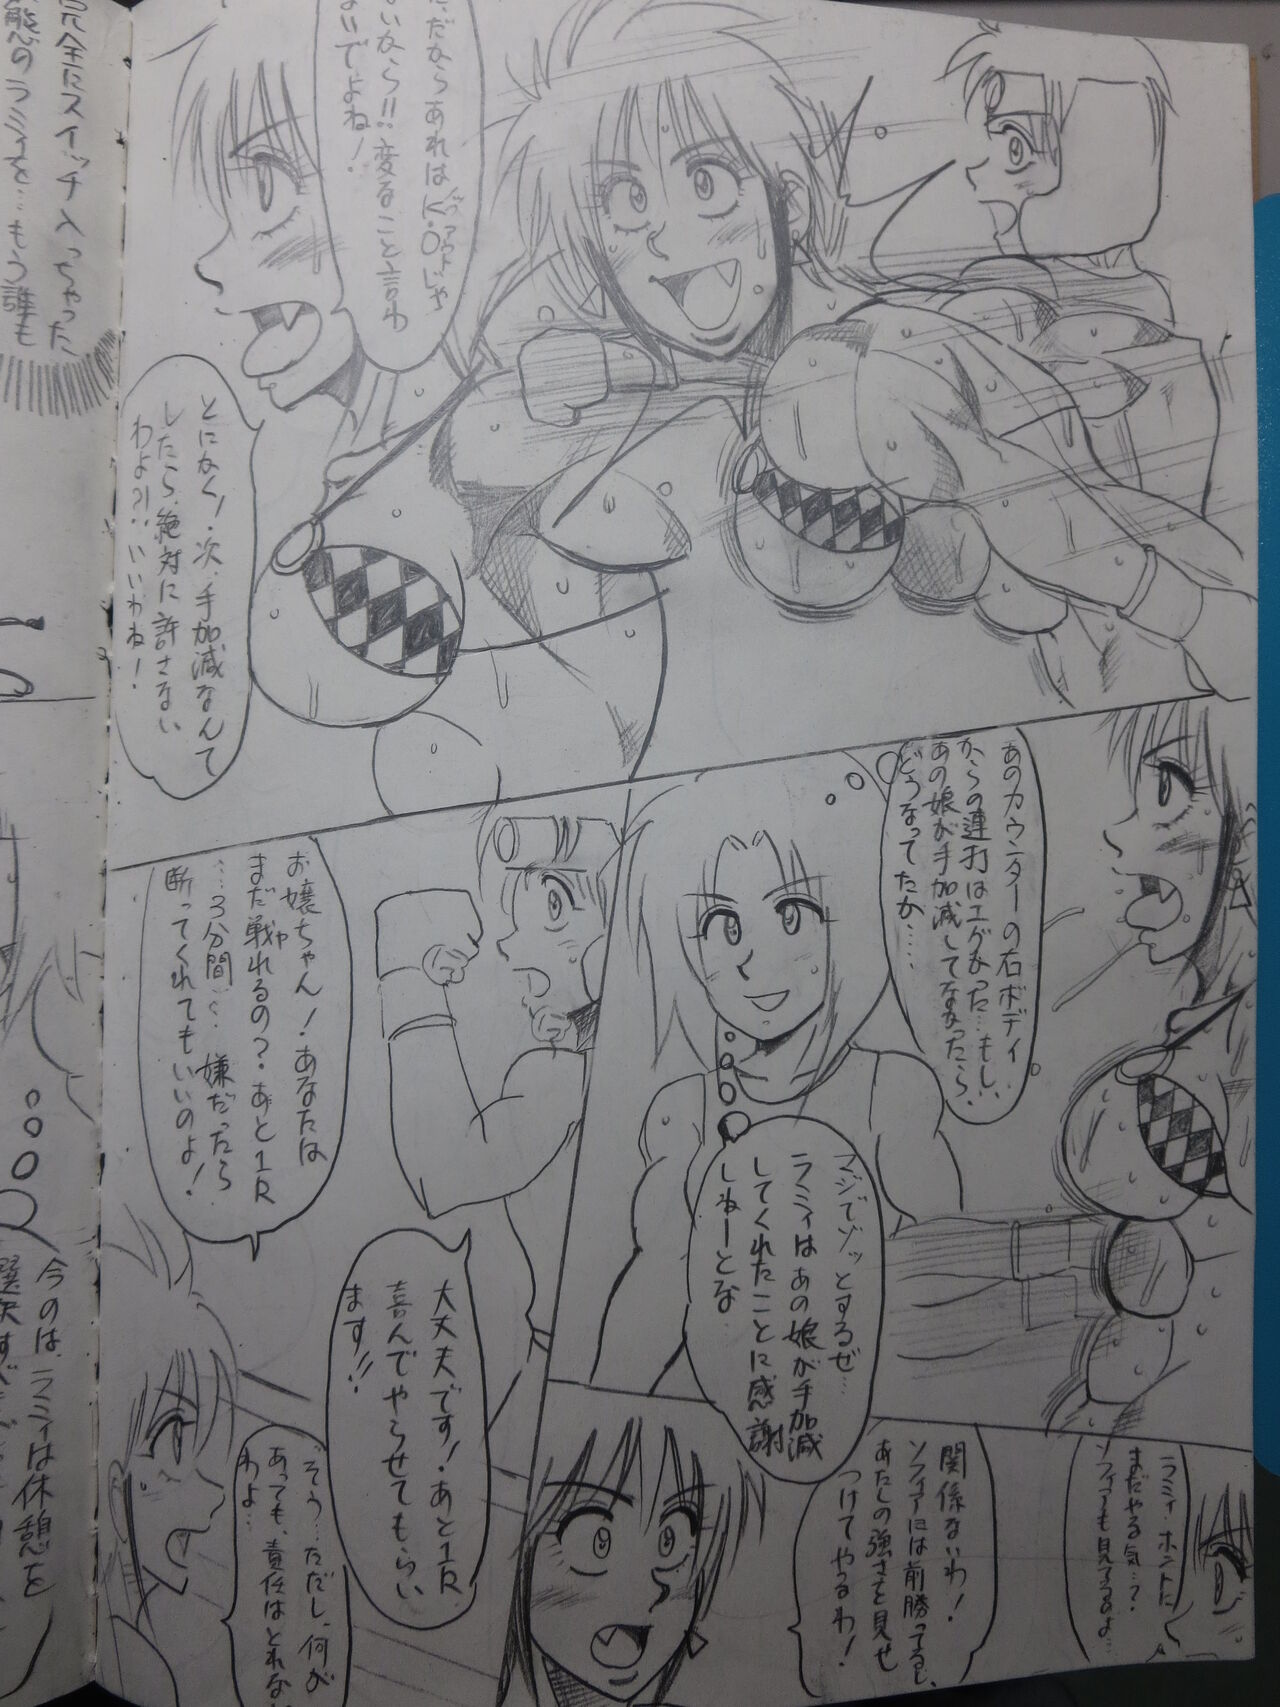 ただならあれはK.O(ノックアウト)じゃ
ないなら!!変なこと言わ
ないでよね!
とにかく!次、手加減なんて
したら絶対に許さない
わよ?!いいわね!
あのカウンターの右ボディ
からの連打はエグかった…もし、
あの娘が手加減してなかったら、
どうなってたか……
マジでゾッとするぜ…
ラミィはあの娘が手加減
してくれたことに感謝
しねーとな
お嬢ちゃん!あなたは
まだ戦(や)れるの?あと1R
…3分間…嫌だったら
断ってくれてもいいのよ!
ラミィ…ホントに
まだやる気…?
ソフィアも見てるよ…
関係ないわ!
ソフィアには前勝ってるし、
あたしの強さを見せ
つけてやるわ!
大丈夫です!あと1R
喜んでやらせてもらい
ます!!
そう…ただし、何が
あっても、責任はとれない
わよ…
完全にスイッチ入っちゃった、
態のラミィを…もう誰も
今のは、ラミィは休憩を